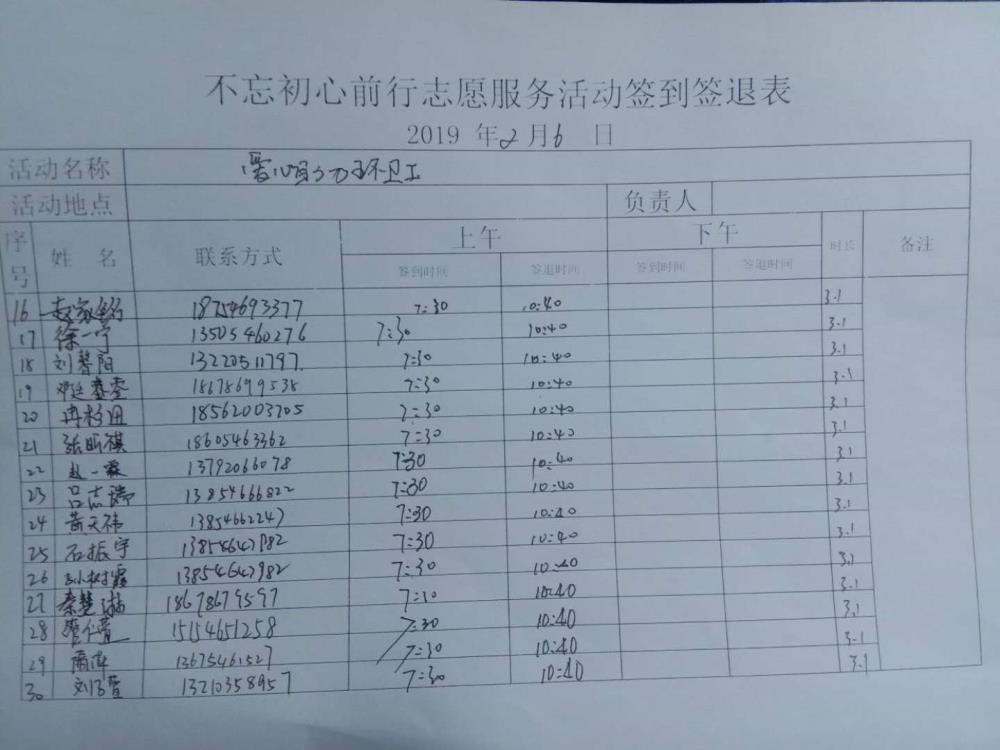 不忘初心前行志愿服务活动签到签退表
2019 年2月6 日
活动名称 爱心 环卫工
活动地点 负责人
序号 姓 名 联系方式 上午 下午 时长 备注
签到时间 签退时间 签到时间 签退时间
16 赵家铭 18754693377 7:30 10:40 3.1
17 徐一宁 13505460276 7:30 10:40 3.1
18 刘馨阳 13220511797 7:30 10:40 3.1
19 18678699538 7:30 10:40 3.1
20 18562003705 7:30 10:40 3.1
21 张昕祺 18605463362 7:30 10:40 3.1
22 赵一霖 13792066078 7:30 10:40 3.1
23 吕志瑞 13854666822 7:30 10:40 3.1
24 黄天祎 13854662247 7:30 10:40 3.1
25 石振宇 13854647982 7:30 10:40 3.1
26 树霞 13854647982 7:30 10:40 3.1
27 秦楚 18678679597 7:30 10:40 3.1
28 15154651258 7:30 10:40 3.1
29 13675461527 7:30 10:40 3.1
30 13210358957 7:30 10:40 3.1